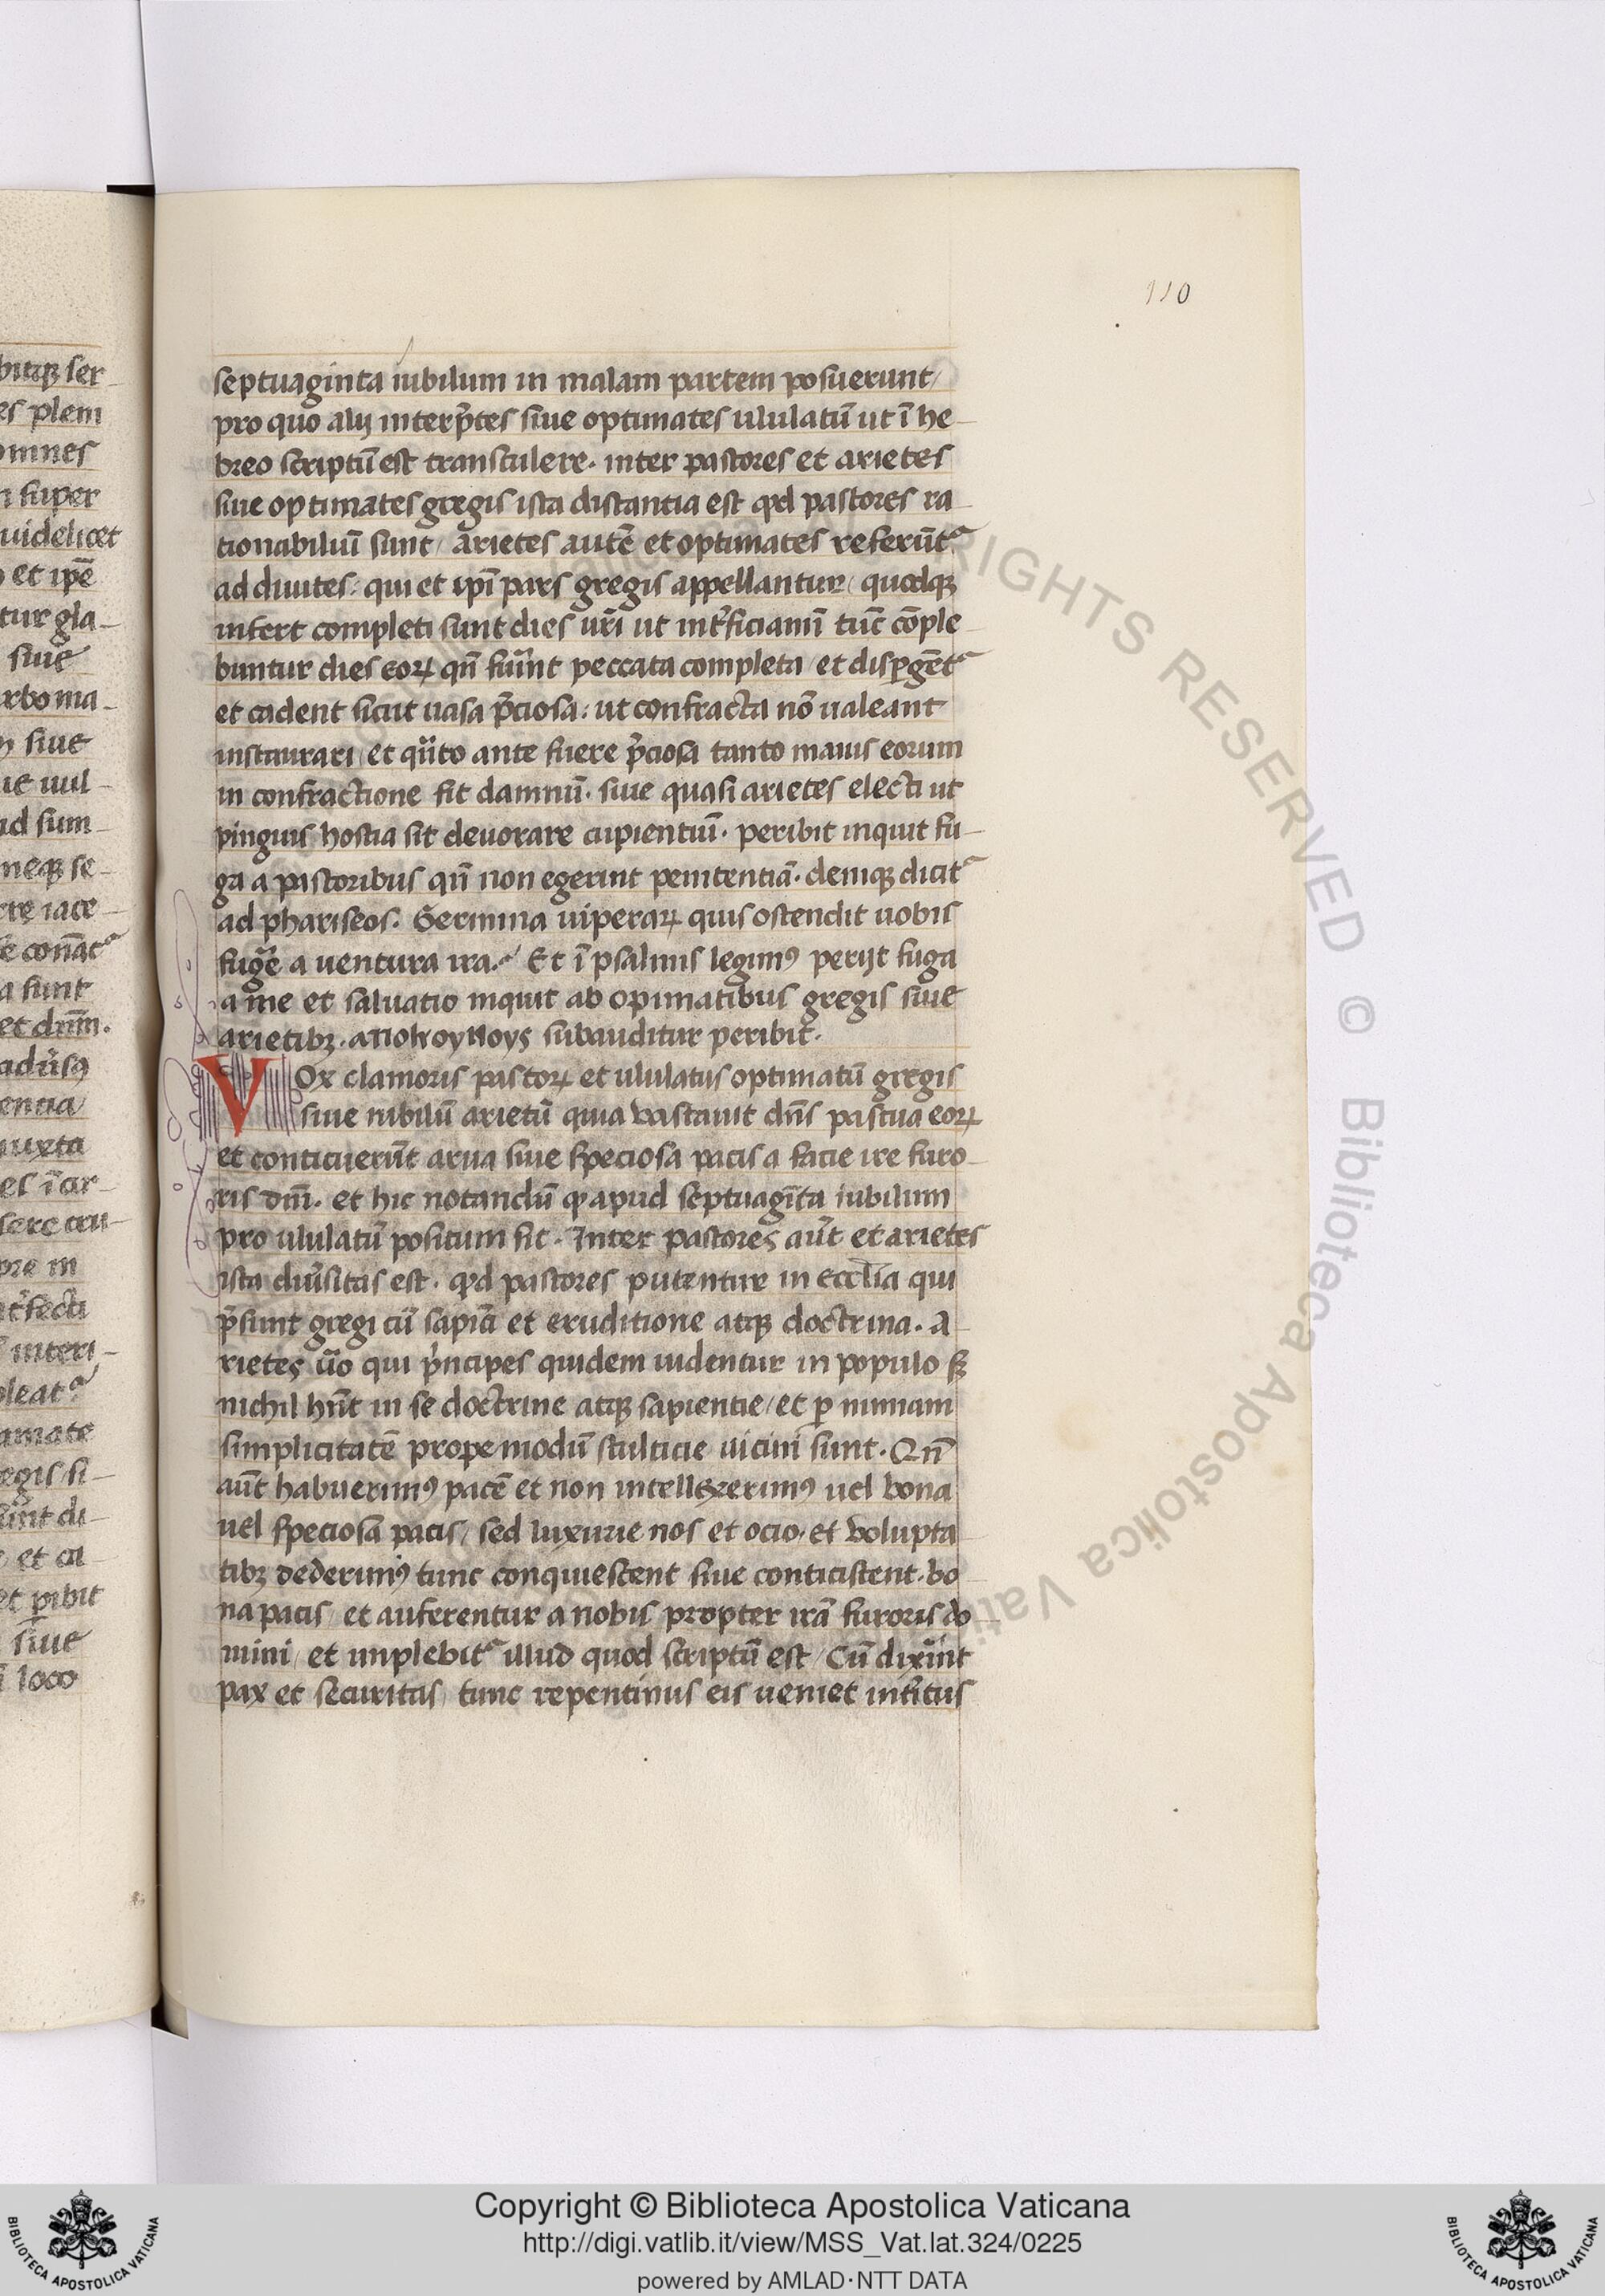 110
septuaginta iubilum in malam partem posuerunt/
pro quo alij interp̃tes siue optimates ululatũ ut ĩ he
breo scriptũ est transtulere. inter pastores et arietes
siue optimates gregis ista distantia est qd pastores ra
tionabiliũ sunt/ arietes autẽ et optimates referũtᷣ
ad diuites: qui et ipĩ pars gregis appellantur/ quodqꝫ
infert completi sunt dies ur̃i ut int̾ficiaminĩ tũc cõple
buntur dies eoꝝ qñ fũint peccata completa/ et disꝑgẽtᷣ
et cadent sicut uasa p̃ciosa: ut confracta nõ ualeant
instaurari/ et qũto ante fuere p̃ciosa tanto maius eorum
in confractione fit damnũ. siue quasi arietes electi ut
pinguis hostia sit deuorare cupientiũ. peribit inquit fu
ga a pastoribus qñ non egerint penitentiã. deniqꝫ dicitᷣ
ad phariseos. Germina uiperaꝝ quis ostendit uobis
fuge̾ a uentura ira. Et ĩ psalmis legimꝰ perijt fuga
a me et saluatio inquit ab opimatibus gregis siue
arietibꝫ. subauditur peribit.
VOx clamoris pastoꝝ et ululatus optimatũ gregis
siue iubilũ arietũ quia vastauit dñs pascua eoꝝ
et conticuerũt arua siue speciosa pacis a facie ire furo
ris dñi. et hic notandũ ꝙ apud septuagĩta iubilum
pro ululatũ positum sit. Inter pastores aũt et arietes
ista diũsitas est. qd pastores putentur in ecclĩa qui
p̃sunt gregi cũ sapiã et eruditione atqꝫ doctrina. A
rietes ũo qui p̃ncipes quidem uidentur in populo sꝫ
nichil hñt in se doctrine atqꝫ sapientie/ et ꝑ nimiam
simplicitatẽ prope modũ stulticie uicini sunt. Qñ
aũt habuerimꝰ pacẽ et non intellexerimꝰ uel bona
uel speciosa pacis/ sed luxurie nos et ocio et volupta
tibꝫ dederimꝰ tunc conquiescent siue conticiscent. bo
na pacis/ et auferentur a nobis propter irã furoris do
mini/ et implebitᷣ illud quod scriptũ est/ Cũ dixĩnt
pax et securitas/ tunc repentinus eis ueniet interitus
Copyright © Biblioteca Apostolica Vaticana
http://digi.vatlib.it/view/MSS_Vat.lat.324/0225
powered by AMLAD·NTT DATA